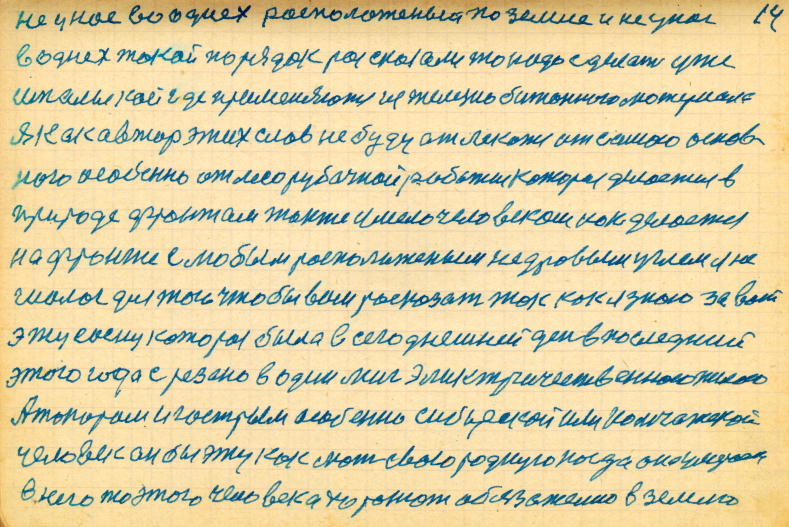 не у нас во однех расположеный по земле и не у нас 14
во днех такой порядок рассказали то надо сделать уже
где применяются железно битонного материала
Я как автор этих слов не буду отлекать от самого основ
ного особенно от лесорубачной работы которая делается в
природе фронтам также смело человеком как делается
на фронте с любым расположеным недровым углем я не
для того чтобы вам расказать так как я знаю за вот
эту сосну которая была в сегоднешней ден в последний
этого года срезано в один миг электричественного
А топорам и гострым особенно сибырской или
человек он бы эту как мать свою родную когда она
в него то этого человека хоронют обязателно в землю